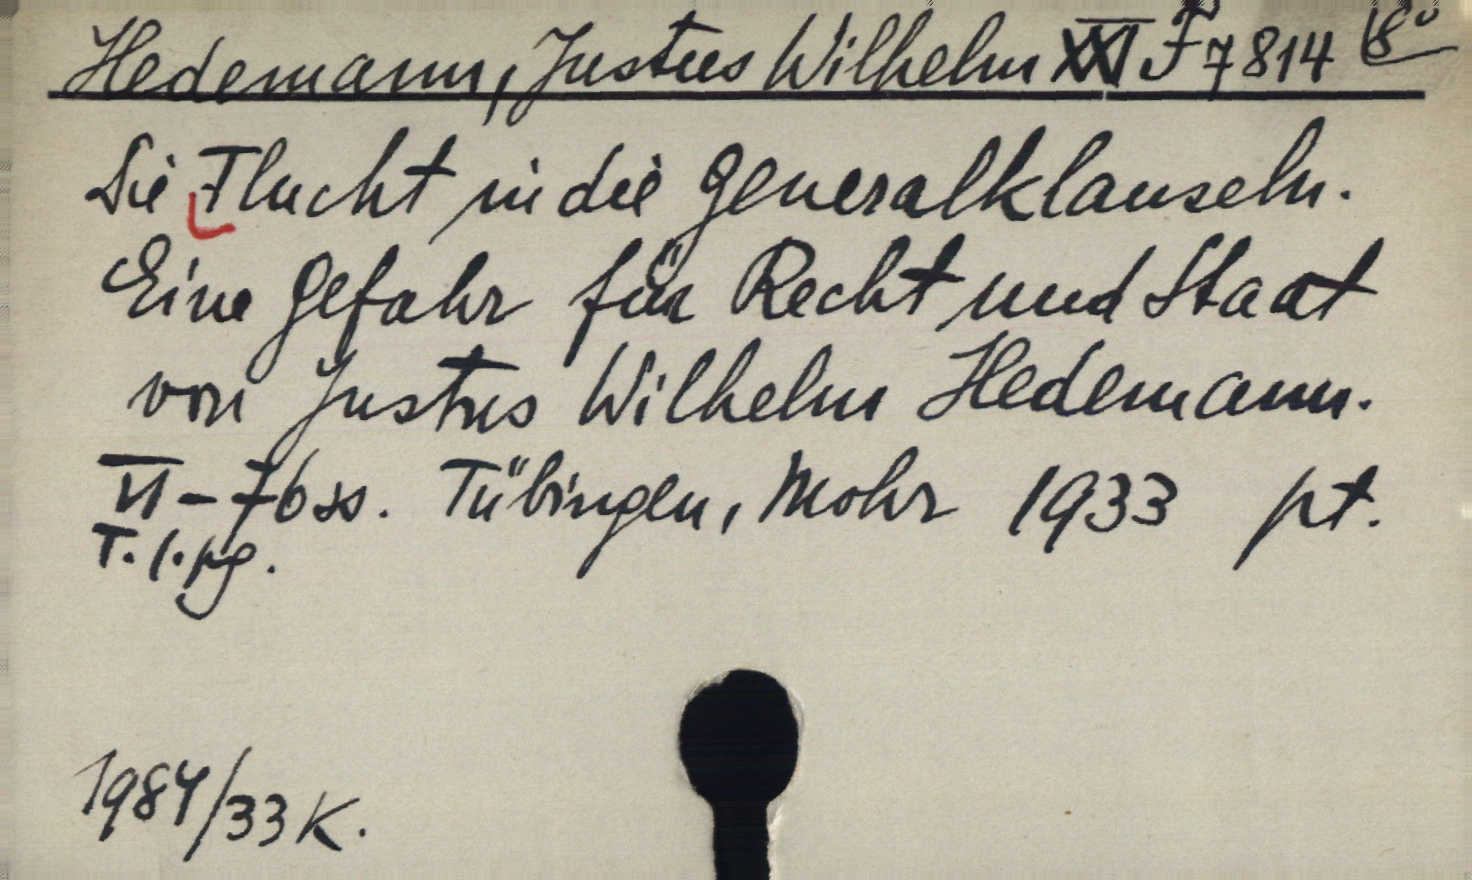 Hedemann, Justus Wilhelm XXI F 7814 8°
Die Flucht in die Generalklauseln.
Eine Gefahr für Recht und Staat
von Justus Wilhelm Hedemann.
VI - 76 ss. Tübingen, Mohr 1933 pt.
T. l. pg.
1984/33 K.